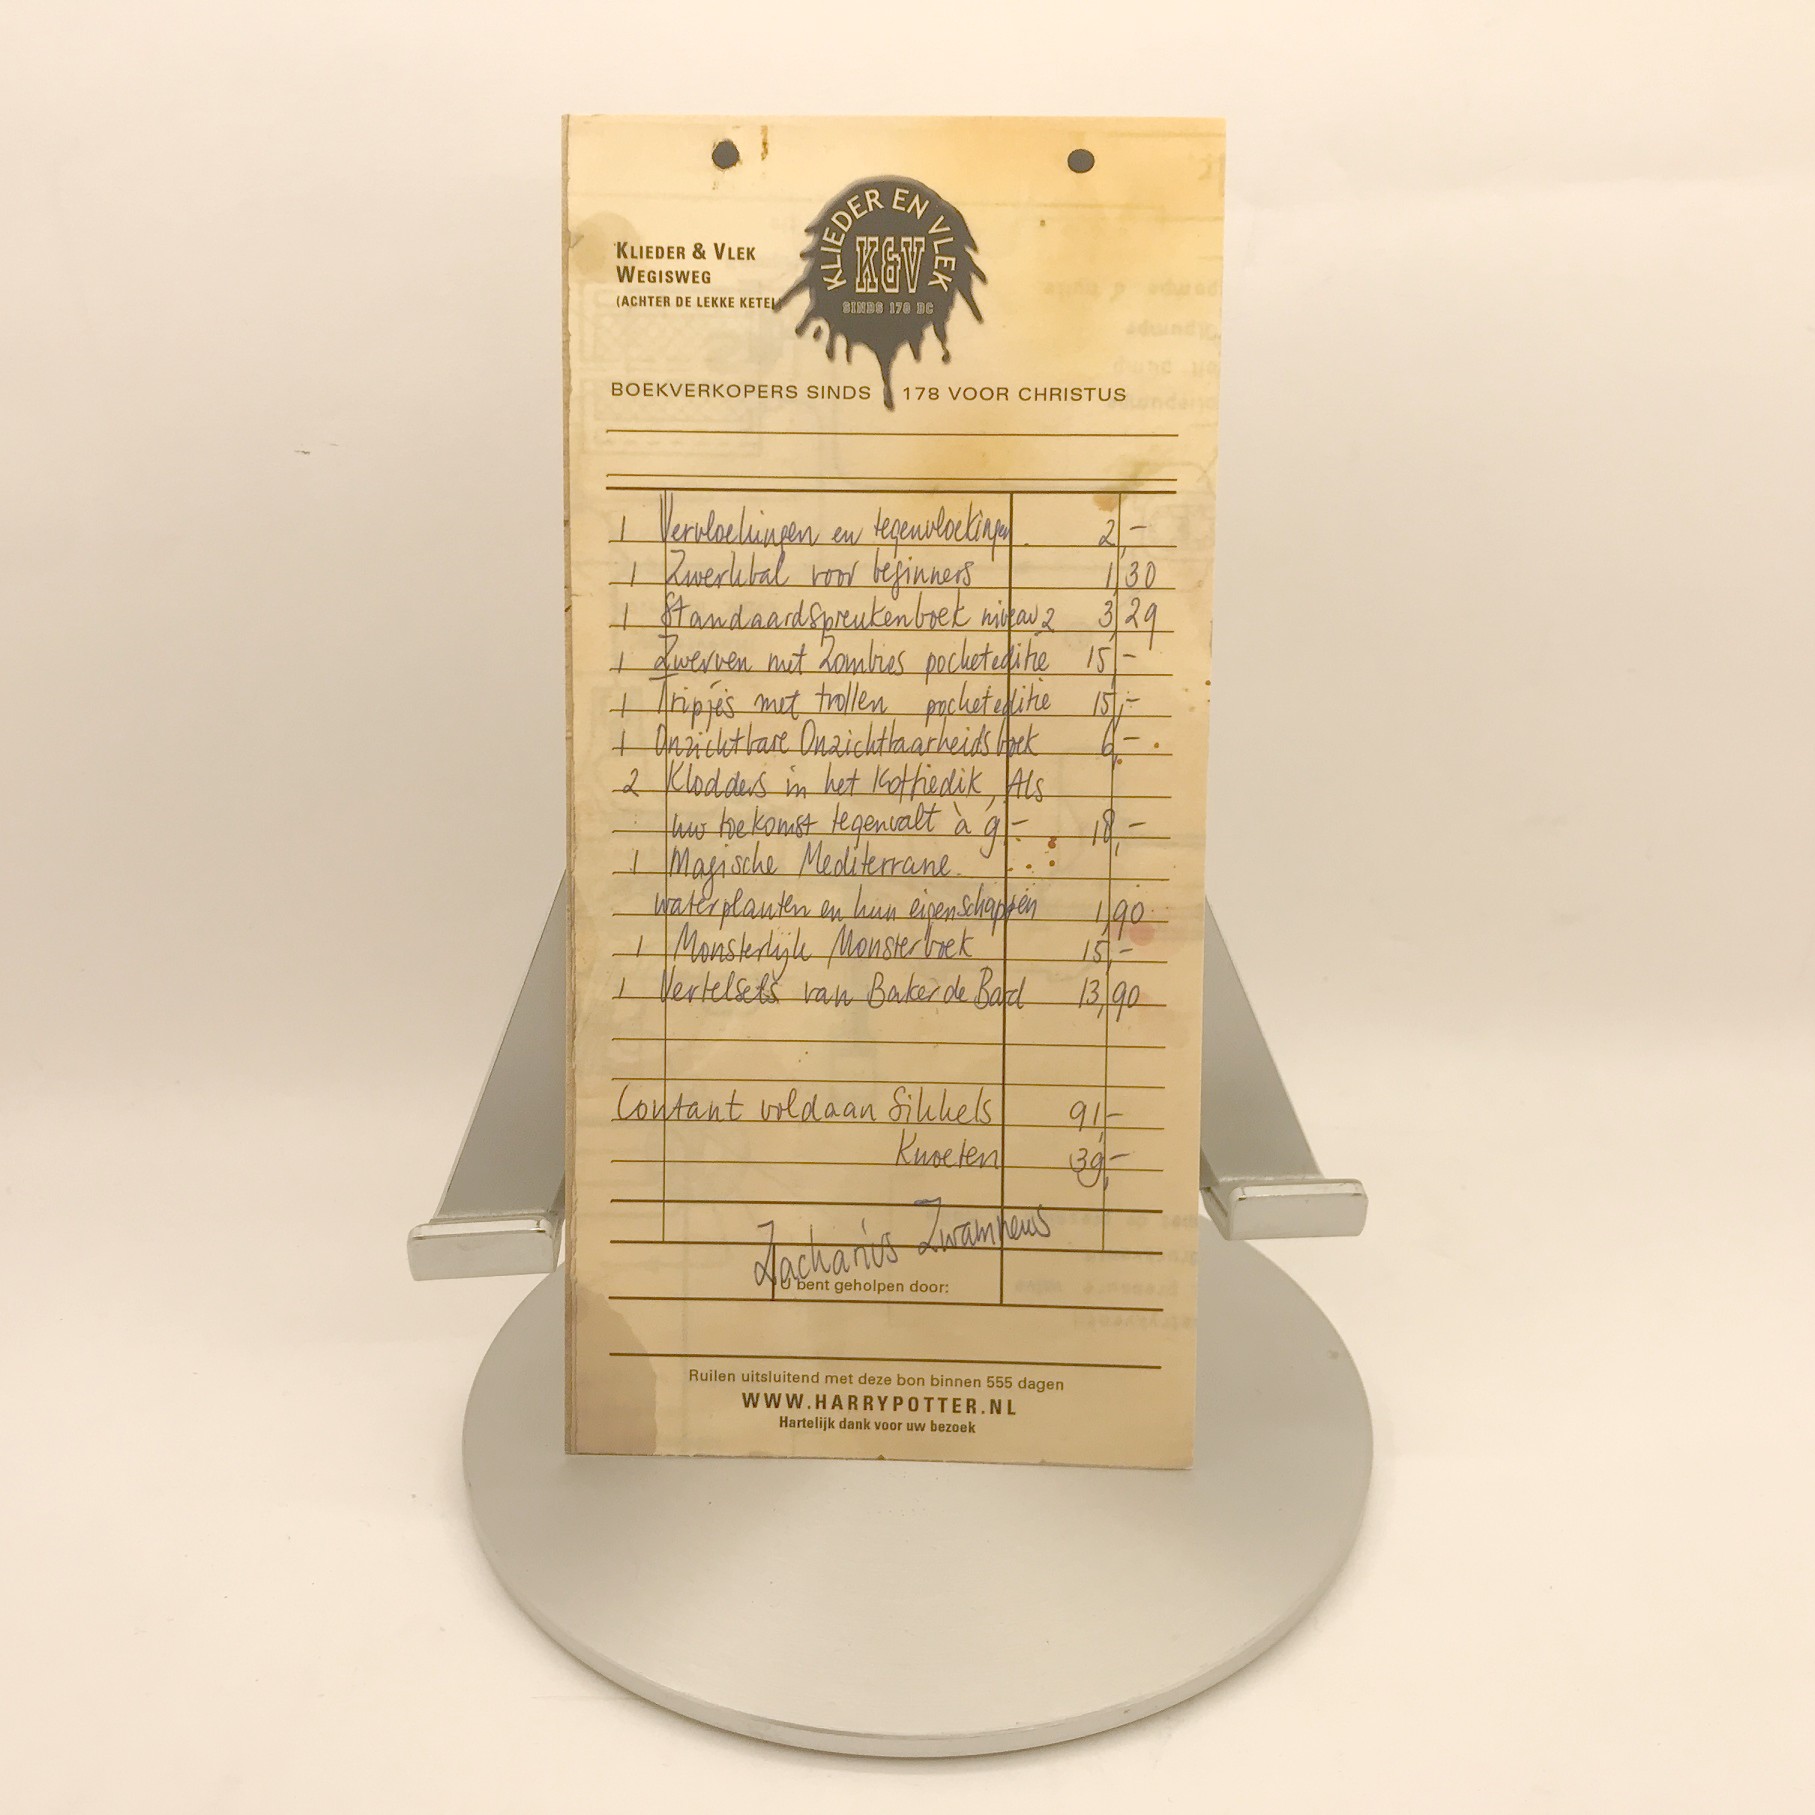 KLIEDER EN VLEK
K&V
SINDS 178 BC
KLIEDER & VLEK
WEGISWEG
(ACHTER DE LEKKE KETEL)
BOEKVERKOPERS SINDS 178 VOOR CHRISTUS
1 Vervloekingen en tegenvloekingen 2,-
1 Zwerkbal voor beginners 1,30
1 Standaardspreukenboek niveau 2 3,29
1 Zwerven met Zombies pocketeditie 15,-
1 Tripjes met trollen pocketeditie 15,-
1 Onzichtbare Onzichtbaarheidsboek 6,-
2 Klodders in het Koffiedik, Als
uw toekomst tegenvalt à 9,- 18,-
1 Magische Mediterrane
waterplanten en hun eigenschappen 1,90
1 Monsterlijk Monsterboek 15,-
1 Vertelsels van Baker de Bard 13,90
Contant voldaan Sikkels 91,-
Knoeten 39,-
Zacharius Zwampeus
U bent geholpen door:
Ruilen uitsluitend met deze bon binnen 555 dagen
WWW.HARRYPOTTER.NL
Hartelijk dank voor uw bezoek